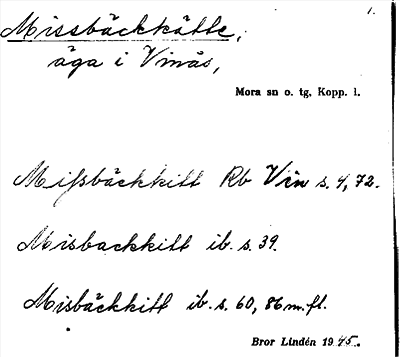 1.
Missbäckkätte,
äga i Vinäs,
Mora sn o. tg, Kopp. l.
Mißsbäckkitt Rb Vin s. 4, 72.
Misbackkitt ib. s. 39.
Misbäckkitt ib. s. 60, 86 m. fl.
Bror Lindén 1945.